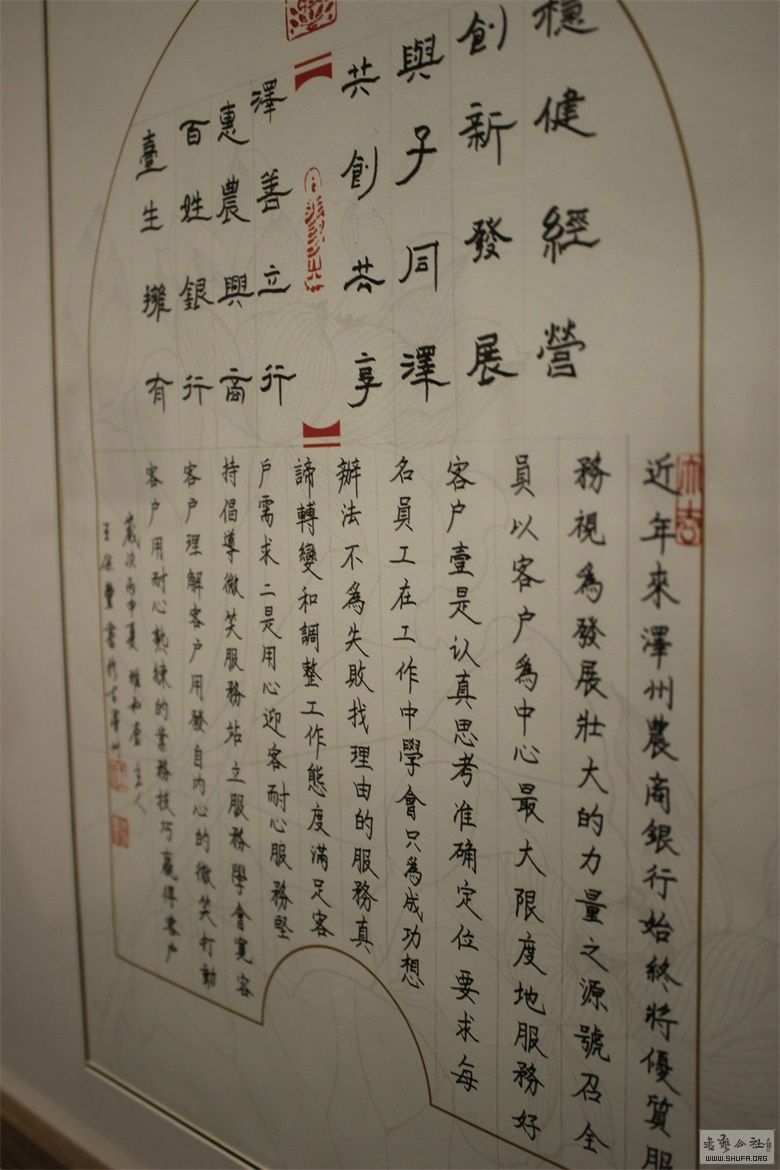 穩健經營
創新發展
與子同澤
共創共享
澤善立行
惠農興商
百姓銀行
臺生擁有
大吉
近年來澤州農商銀行始終將優質服
務視為發展壯大的力量之源號召全
員以客户為中心最大限度地服務好
客户壹是认真思考准确定位要求每
名員工在工作中學會只為成功想
辦法不為失敗找理由的服務真
諦轉變和調整工作態度滿足客
户需求二是用心迎客耐心服務堅
持倡導微笑服務站立服務學會寬容
客户理解客户用發自内心的微笑打動
客户用耐心熟練的業務技巧贏得客户
歲次丙申夏雅和壺主人
王保
書公社
WWW.SHUFA.ORG